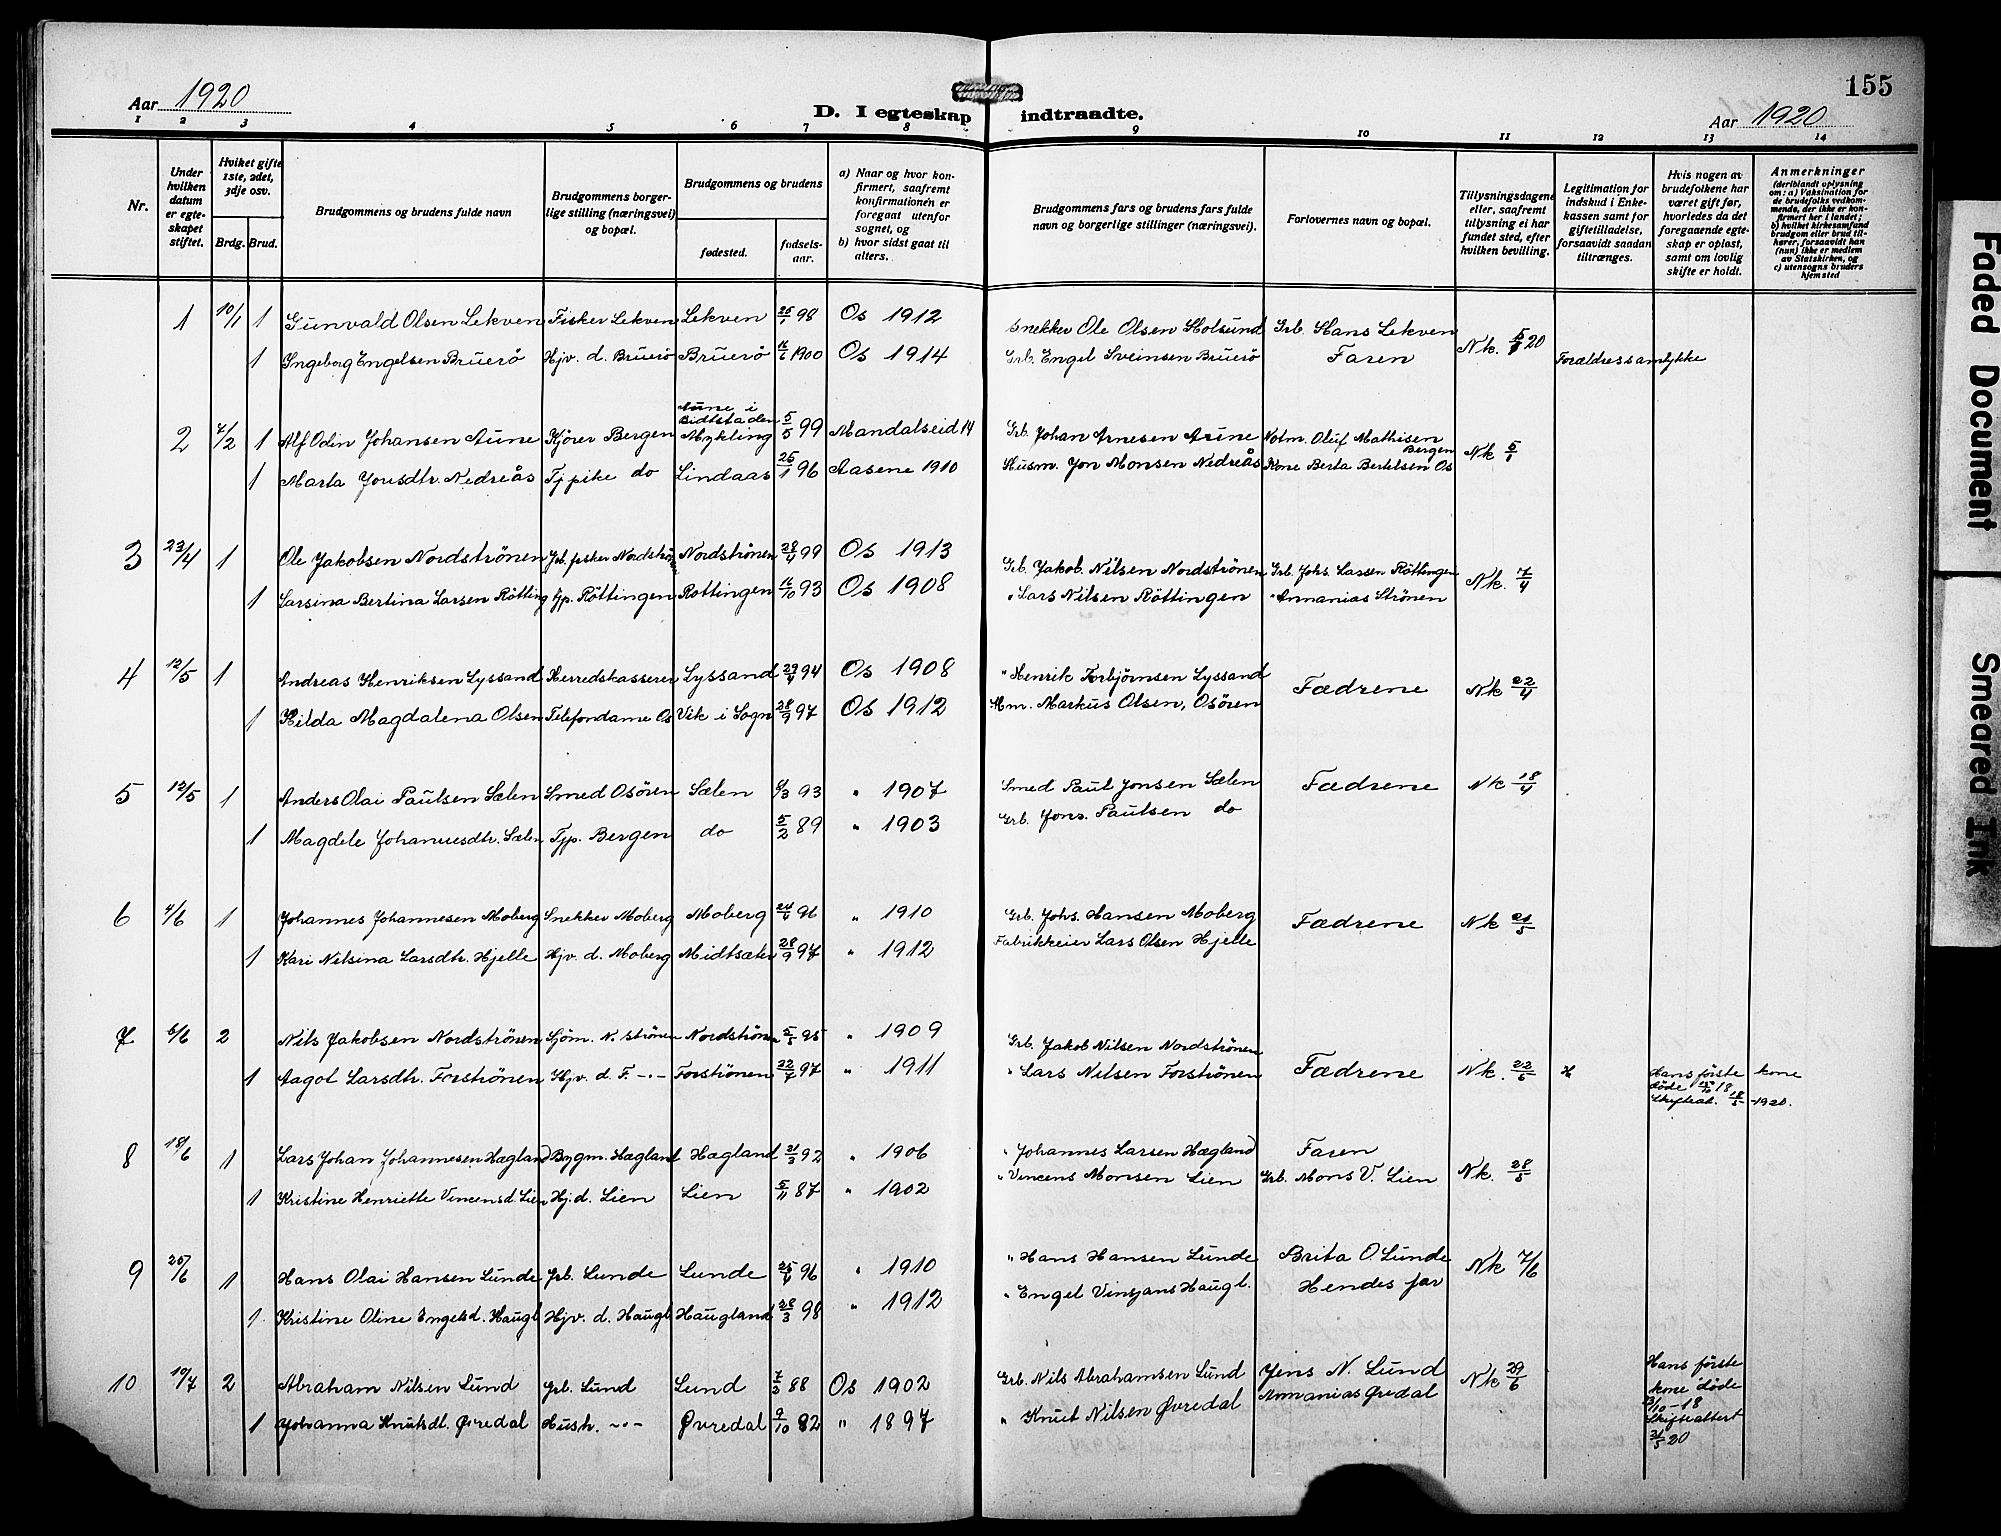 155
Aar 1920
D. I egteskap indtraadte.
Aar 1920
1 2 3 4 5 6 7 8 9 10 11 12 13 14
Nr.
Under hvilken datum er egteskapet stiftet.
Hvilket gifte 1ste, 2det, 3dje osv.
Brdg. Brud.
Brudgommens og brudens fulde navn
Brudgommens borgerlige stilling (næringsvei) og bopæl.
Brudgommens og brudens
fødested.
fødselsaar.
a) Naar og hvor konfirmert, saafremt konfirmationen er foregaat utenfor sognet, og
b) hvor sidst gaat til alters.
Brudgommens fars og brudens fars fulde navn og borgerlige stillinger (næringsvei).
Forlovernes navn og bopæl.
Tillysningsdagene eller, saafremt tillysning ei har fundet sted, efter hvilken bevilling.
Legitimation for indskud i Enkekassen samt for giftetilladelse, forsaavidt saadan tiltrænges.
Hvis nogen av brudefolkene har været gift før, hvorledes da det foregaaende egteskap er opløst, samt om lovlig skifte er holdt.
Anmerkninger
(deriblandt oplysning om: a) Vaksination for de brudefolks vedkommende, der ikke er konfirmert her i landet; b) hvilket kirkesamfund brudgom eller brud tilhører, forsaavidt han (hun) ikke er medlem av Statskirken, og c) utensogns bruders hjemsted
1 10/1 1 Gunvald Olsen Lekven Fisker Lekven Lekven 98 Os 1912 Snekker Ole Olsen Holsund Grb. Hans Lekven Nk. 20
1 Ingeborg Engelsen Bruerö Hjv. d. Bruerö Bruerö 1900 Os 1914 Grb. Engel Sveinsen Bruerö Faren Forældres samtykke
2 7/2 1 Alf Odin Johansen Aune Kjörer Bergen Aune i Mykling 5/5 99 Mandalseid 14 Grb. Johan Arnesen Aune Kolm. Oluf Mathisen Bergen Nk
1 Marta Jonsdtr. Nedreås Tj pike do Lindaas 25/1 96 Aasene 1910 Husm. Jon Monsen Nedreås Kone Berta Bertelsen Os
3 23/4 1 Ole Jakobsen Nordströnen Nordströnen 28/4 99 Os 1913 Grb. Jakob Nilsen Nordströnen Grb. Johs. Larsen Röttingen Nk. 7/4
1 Larsina Bertina Larsen Rötting tjp. Röttingen Rottingen 11/10 93 Os 1908 " Lars Nilsen Röttingen " Annanias Strönen
4 12/5 1 Andreas Henriksen Lyssand Herredskasserer Lyssand 29/4 94 Os 1908 " Henrik Torbjörnsen Lyssand Fædrene Nk 22/4
1 Hilda Magdalena Olsen Telefondame Os Vik i Sogn 28/9 97 Os 1912 Markus Olsen, Osören
5 12/5 1 Anders Olai Paulsen Sælen Smed Osören Sælen 93 " 1907 Smed Paul Jonsen Sælen Fædrene Nk 18/4
1 Magdele Johannesdtr. Sælen Tjp. Bergen do 5/2 89 " 1903 Grb. Jons. Paulsen do
6 4/6 1 Johannes Johannesen Moberg Snekker Moberg Moberg 24/4 96 " 1910 Grb. Johs. Hansen Moberg Fædrene Nk 21/5
1 Kari Nilsina Larsdtr. Hjelle Hjv. d. Moberg Midtsæter 28/9 97 " 1912 Fabrikkeier Lars Olsen Hjelle
7 6/6 2 Nils Jakobsen Nordströnen Sjöm. N. strönen Nordströnen 5/5 95 " 1909 Grb. Jakob Nilsen Nordströnen
1 Aagot Larsdtr. Forströnen Hjv. d. F. -"- Forströnen 22/7 97 " 1911 " Lars Nilsen Forströnen Fædrene Nk. 22/5 Hans förste kone
döde 18
Skifteat. 18/5 -1920.
8 18/6 1 Lars Johan Johannesen Hægland Bygm. Hægland Hægland 21/3 92 " 1906 " Johannes Larsen Hægland Faren
1 Kristine Henriette Vincensd. Lien Hj. d. Lien Lien 5/11 87 " 1902 " Vincens Monsen Lien Grb. Mons V. Lien Nk. 28/5
9 20/6 1 Hans Olai Hansen Lunde Grb. Lunde Lunde 25/4 96 " 1910 " Hans Hansen Lunde Brita O Lunde Nk 7/6
1 Kristine Oline Engelsd. Haugl Hjv. d. Haugl Haugland 28/3 98 " 1912 " Engel Vinsjans Haugl. Hendes far
10 10/7 2 Abraham Nilsen Lund Grb. Lund Lund 7/2 88 Os 1902 Grb. Nils Abrahamsen Lund Jens N. Lund Nk 29/6 Hans förste
kone döde
/10-18
Skifteattest
31/5 20
1 Johanna Knutsdt. Øvredal Hush. -"- Øvredal 9/10 82 " 1897 " Knut Nilsen Øvredal Annanias Øvredal
Faded Document
Smeared Ink